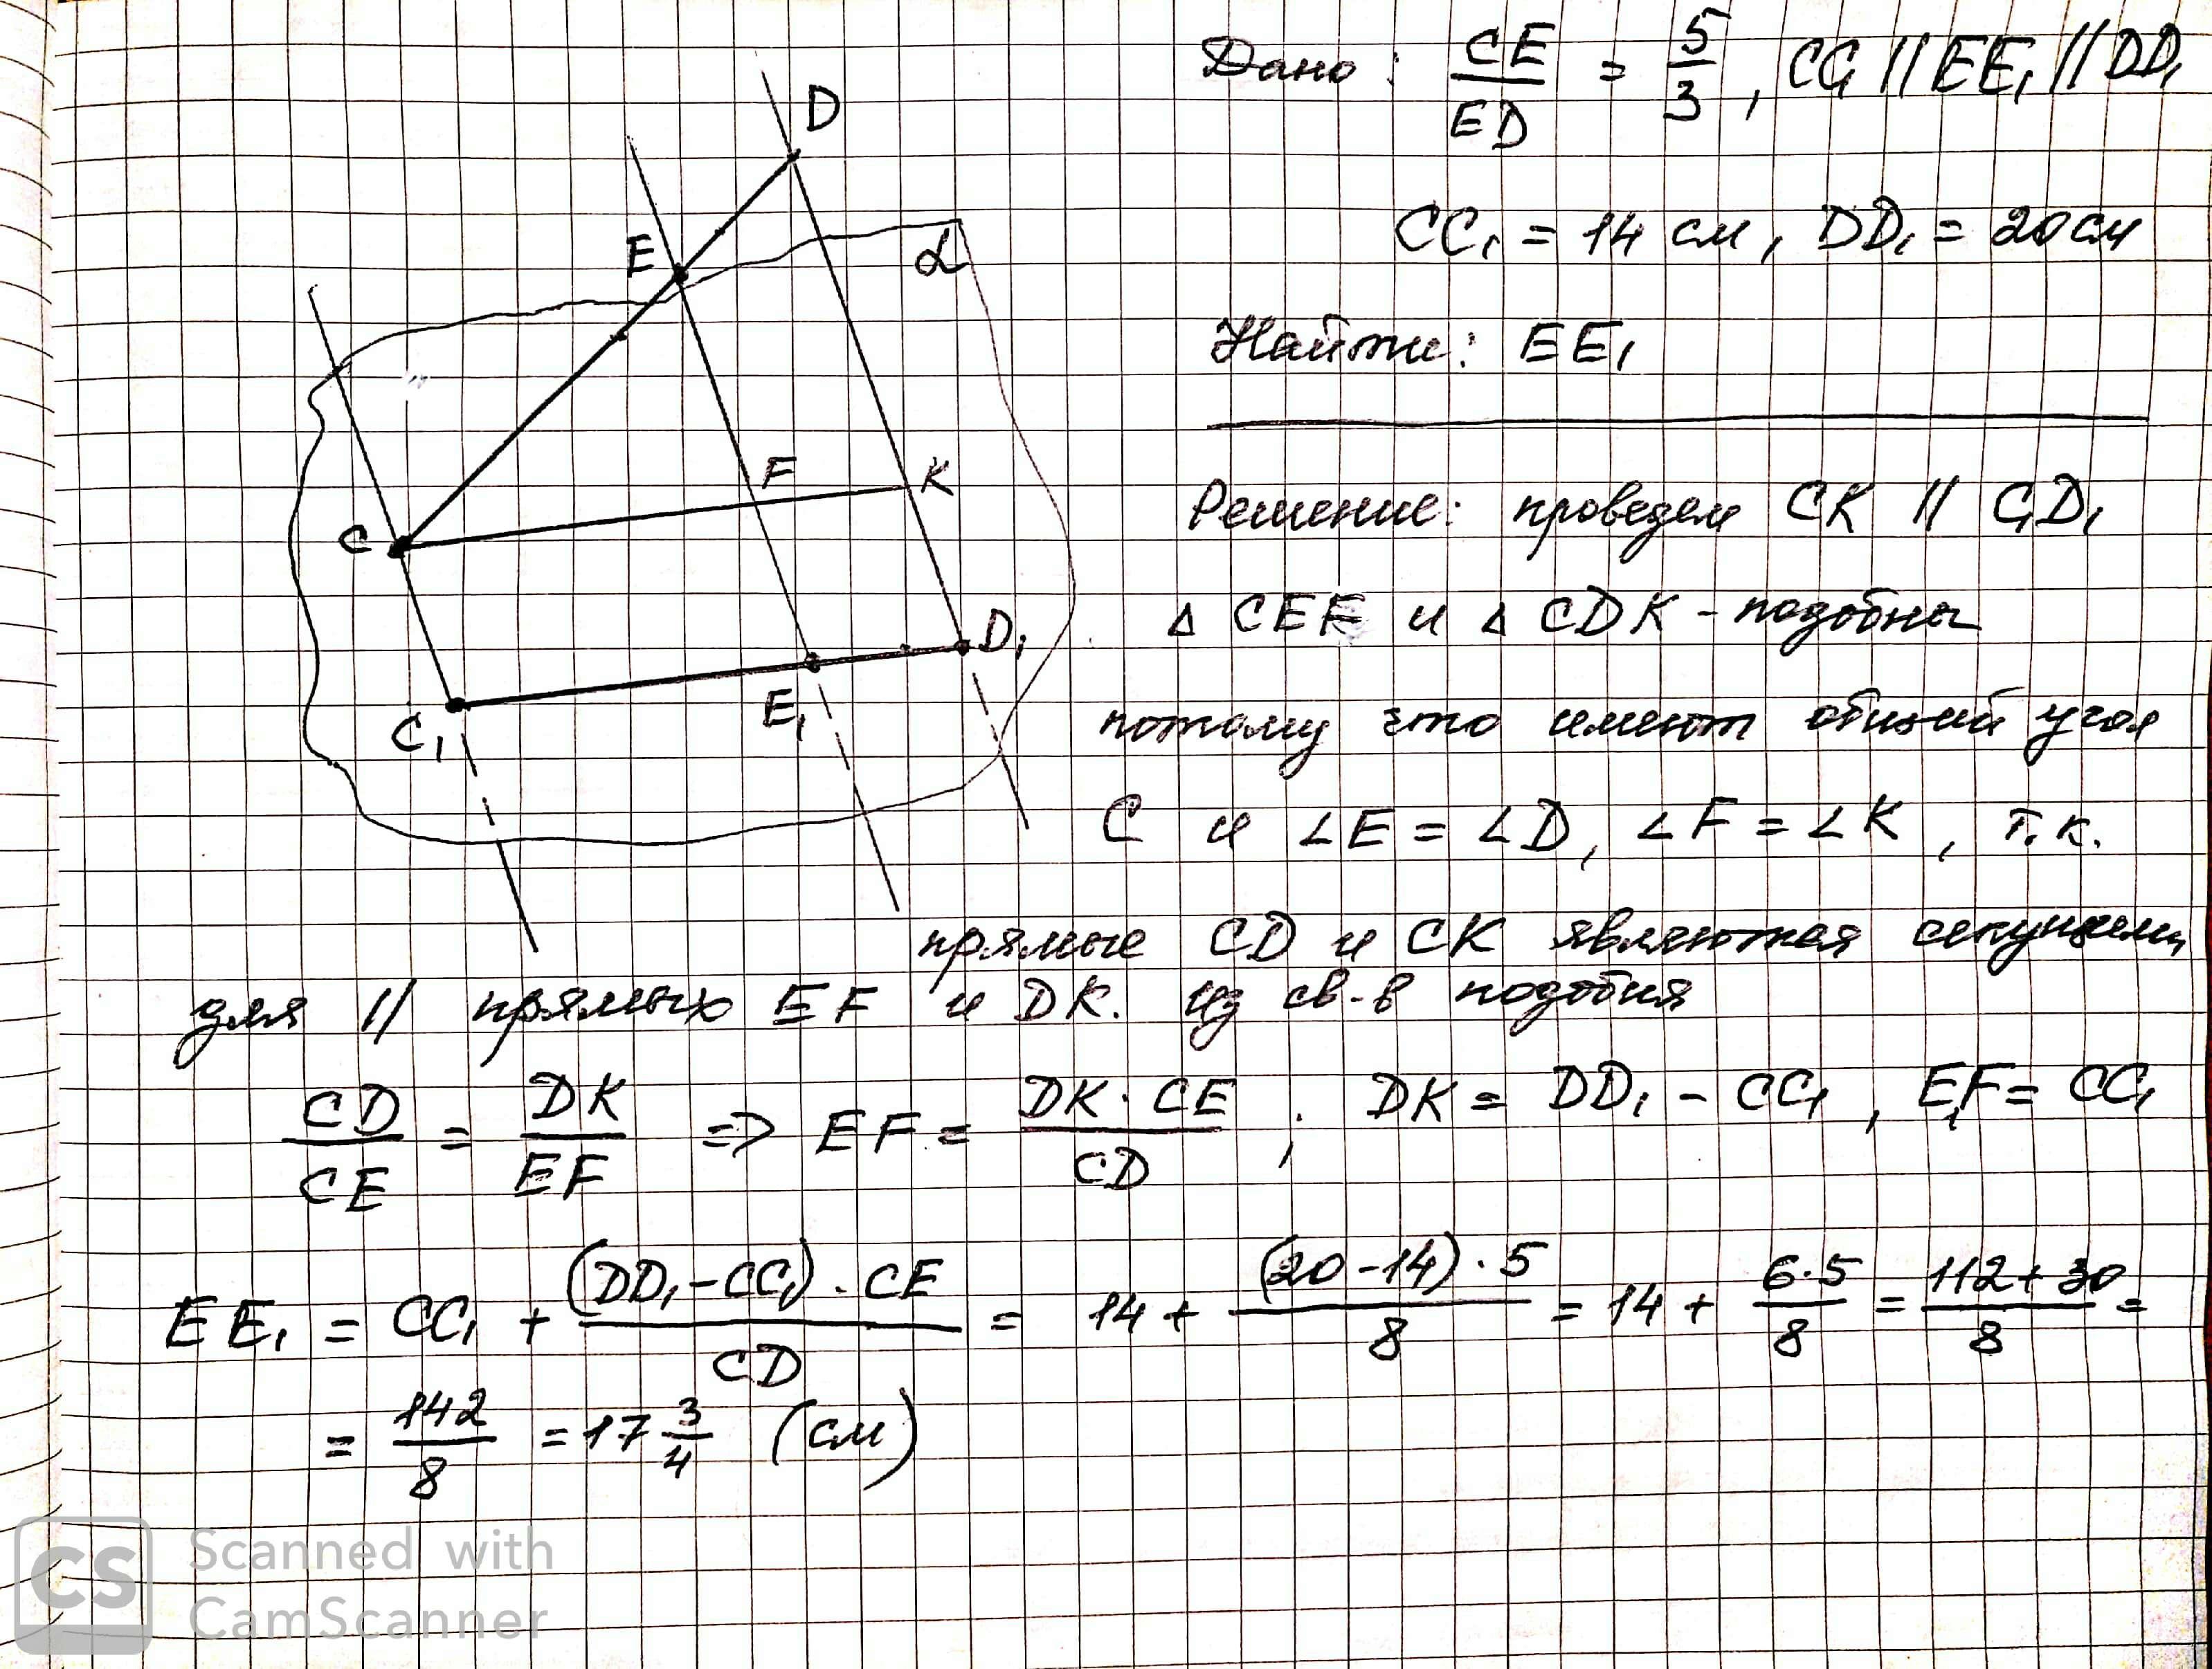 Дано: CE/ED = 5/3, CC₁ // EE₁ // DD₁
CC₁ = 14 см, DD₁ = 20 см
Найти: EE₁
D
E
α
F
K
C
D₁
E₁
C₁
Решение: проведем CK // C₁D₁
△ CEF и △ CDK - подобны
потому что имеют общий угол
C и ∠E = ∠D, ∠F = ∠K, т.к.
прямые CD и CK являются секущими
для // прямых EF и DK. Из св-в подобия
CD/CE = DK/EF => EF = DK · CE/CD ; DK = DD₁ - CC₁, E₁F = CC₁
EE₁ = CC₁ + (DD₁ - CC₁) · CE/CD = 14 + (20 - 14) · 5/8 = 14 + 6·5/8 = 112 + 30/8 =
= 142/8 = 17 3/4 (см)
CS Scanned with
CamScanner